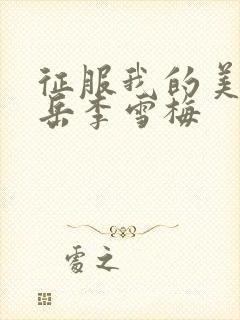 征服我的美
岳李雪梅
处之